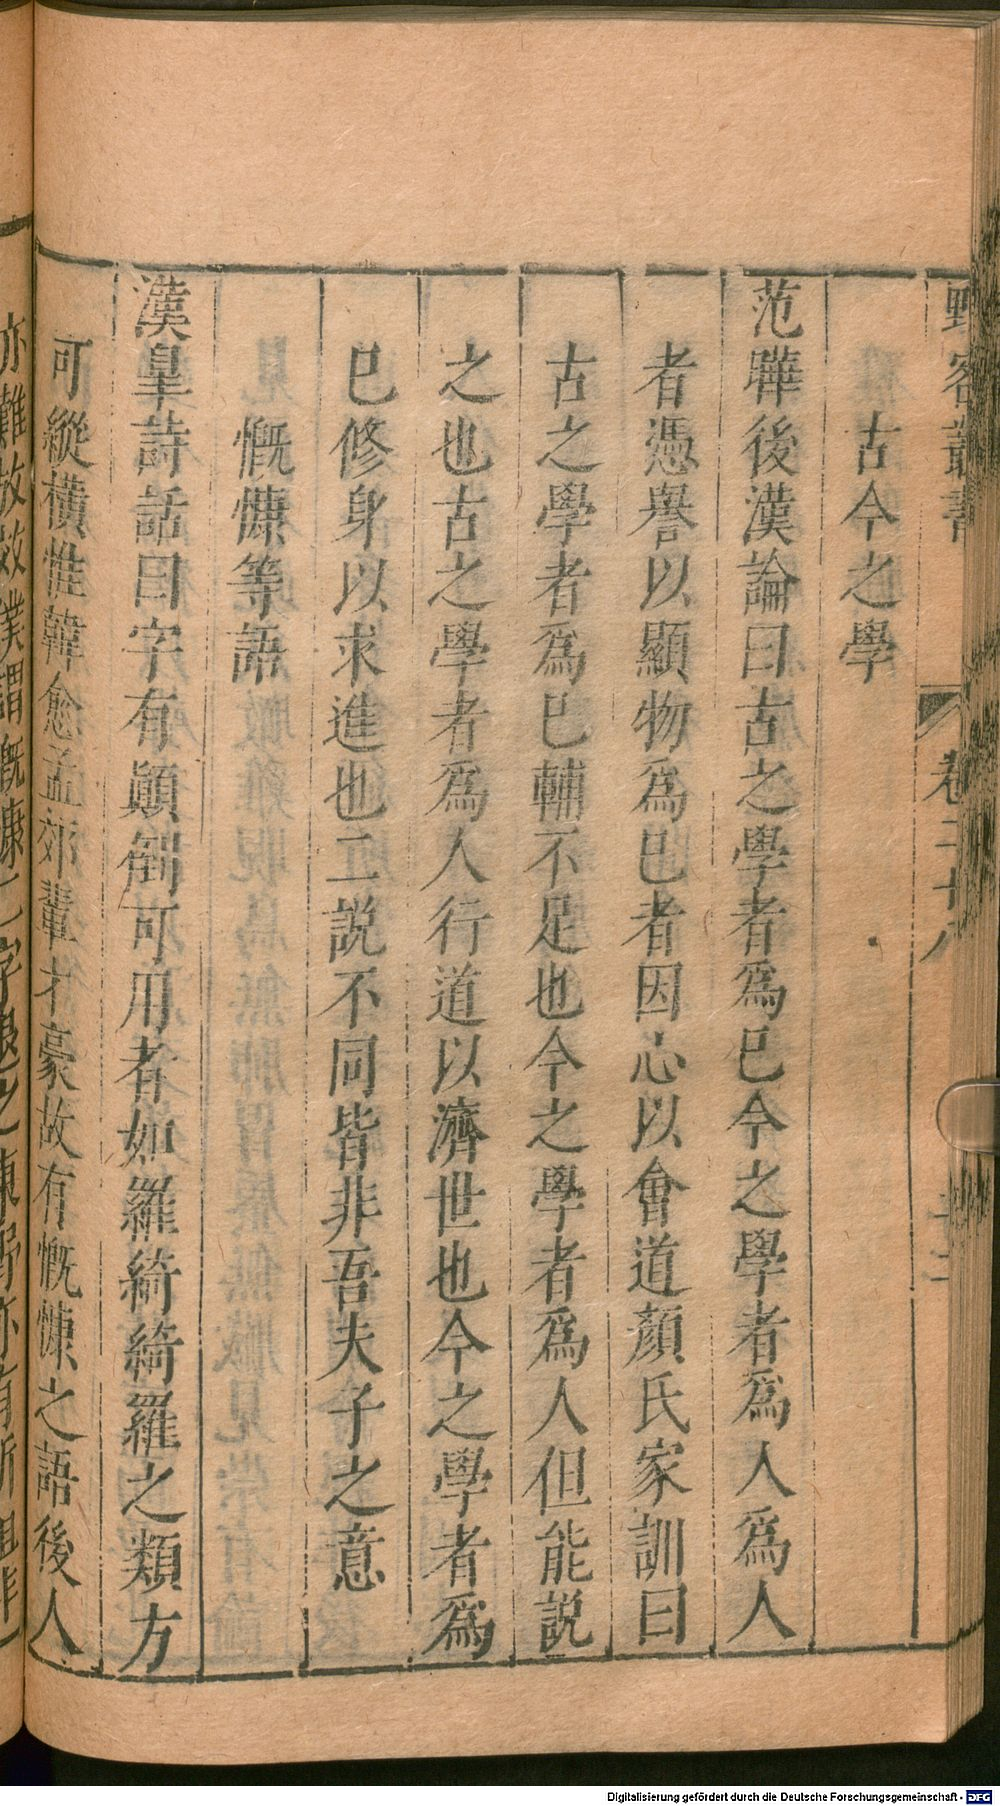 野客叢書 卷二十八
古今之學
范曄後漢論曰古之學者爲已今之學者爲人爲人
者憑譽以顯物爲已者因心以會道顏氏家訓曰
古之學者爲已輔不足也今之學者爲人但能說
之也古之學者爲人行道以濟世也今之學者爲
已修身以求進也二說不同皆非吾夫子之意
慨慷等語
漢皐詩話曰字有顚倒可用者如羅綺綺羅之類方
可縱橫惟韓愈孟郊輩才豪故有慨慷之語後人
亦難故效僕謂慨慷二字退之
Digitalisierung gefördert durch die Deutsche Forschungsgemeinschaft - DFG